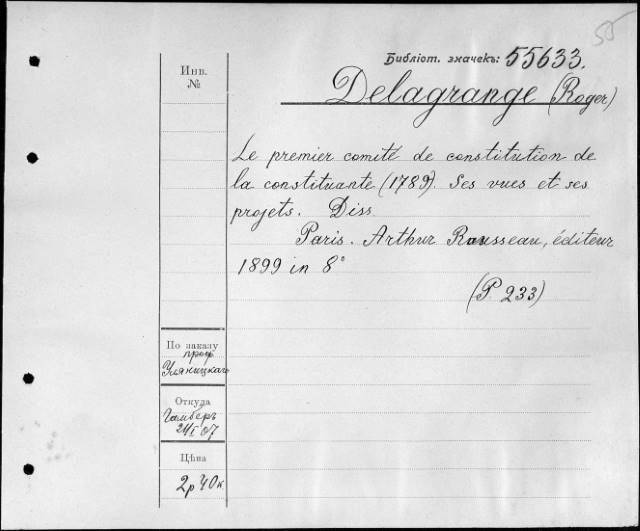 55
Библіот. значекъ: 55633.
Инв.
№
Delagrange (Roger)
Le premier comité de constitution de
la constituante (1789). Ses vues et ses
projets. Diss.
Paris. Arthur Rousseau, éditeur
1899 in 8°
(P. 233)
По заказу
проф
Уляницкаго
Откуда
Гамберъ
07
Цѣна
2р 40к